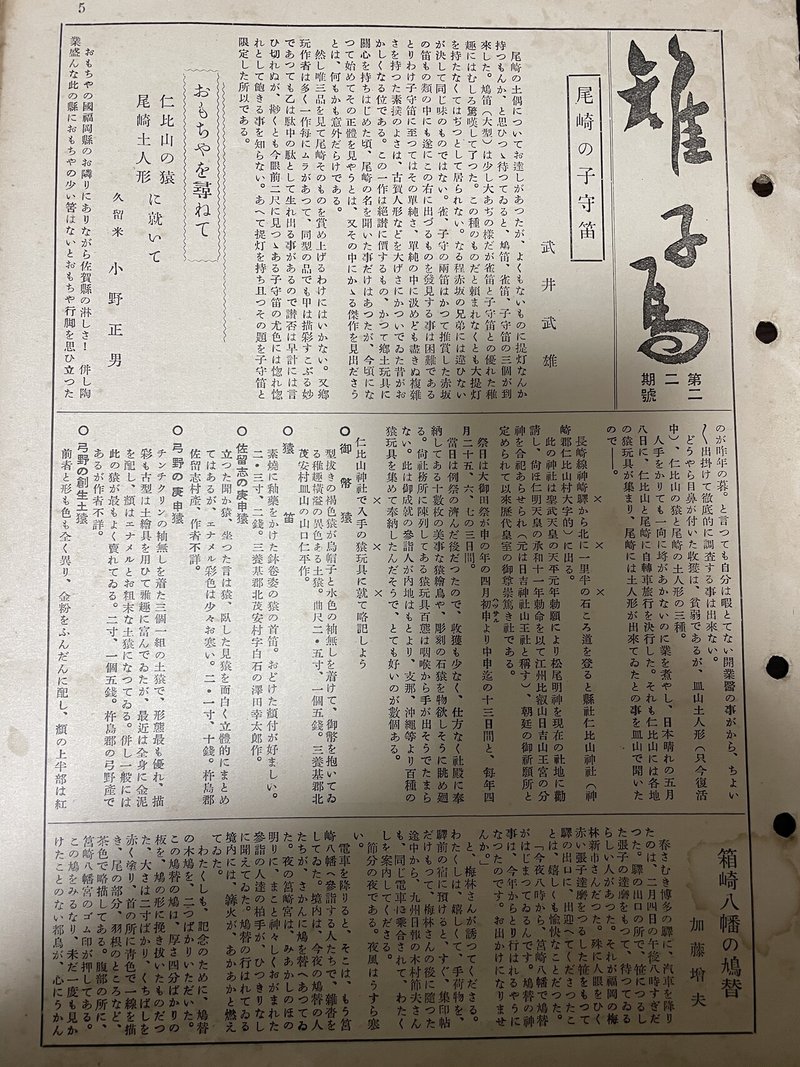 5
雉子馬
第二
二
期號
尾崎の子守笛
武井武雄
尾崎の土偶についてお達しがあつたが、よくもないものに提灯なんか
持つもんか、と思ひつゝ待つてゐると、鳩笛、雀笛、子守笛の三個が到
來した。鳩笛（大型）は少し大あぢの樣だが雀笛と子守笛との優れた稚
趣にはむしろ驚嘆して了つた。この種のものだと頼まれなくとも大提灯
を持たなくてはぢつとして居られない。なる程赤坂の兄弟には違ひない
が決して同じ味のものではない。雀、子守の兩笛はかつて推賞した赤坂
の笛もの類の中にも遂にこの右に出づるものを發見する事は困難である
とりわけ子守笛に至つてはその單純さ、單純の中に汲めども盡きぬ複雜
さを持つた素撲のよさは、古賀人形などを大げさにかついでゐた昔がお
かしくなる位である。この一作は絕讃に價するもの、かつて鄕土玩具に
關心を持ちはじめた頃、尾崎の名を聞いた事だけはあつたが、今頃にな
つて始めてその正體を見やうとは、又その中にかゝる傑作を見出ださう
とは、何もかも意外だらけである。
然し唯三品を見て尾崎そのものを賞め上げるわけにはいかない。又鄕
玩作者は多く一作每にムラがあつて、同型の品でも甲は描彩すこぶる妙
であつても乙は駄中の駄として生れ出る事があるので讃否は早計には言
ひ切れぬが、尠くとも今眼前二尺に見つゝある子守笛の尤色には惚れ惚
れとして飽きる事を知らない。あへて提灯を持ち且つその題を子守笛と
限定した所以である。
おもちやを尋ねて
仁比山の猿
尾崎土人形
に就いて
久留米 小野正男
おもちやの國福岡縣のお隣りにありながら佐賀縣の淋しさ！ 併し陶
業盛んな此の縣におもちやの少い筈はないとおもちや行脚を思ひ立つた
のが昨年の暮。と言つても自分は暇とてない開業醫の事だから、ちよい
〱出掛けて徹底的に調査する事は出來ない。
どうやら目鼻が付いた收獲は、貧弱であるが、皿山土人形（只今復活
中）、仁比山の猿と尾崎の土人形の三種。
人手をかりても一向に埒があかないのに業を煮やし、日本晴れの五月
八日に、仁比山と尾崎に自轉車旅行を決行した。それも仁比山には各地
の猿玩具が集まり、尾崎には土人形が出來てゐたとの事を皿山で聞いた
ので――。
×　×　×
長崎線神崎驛から北に一里半の石ころ道を登ると縣社仁比山神社（神
崎郡仁比山村大字的）に出る。
此の神社は聖武天皇の天平元年勅願により松尾明神を現在の社地に勸
請し、尙ほ仁明天皇の承和十一年勅命を以て江州比叡山日吉山王宮の分
神を合祀あらせられ（元は日吉神社山王社と稱す）、朝廷の御祈願所と
定められて以來歷代皇室の御尊崇篤き社である。
祭日は大御田祭が申の年の四月初申より中申迄の十三日間と、每年四
月二十五、六、七の三日間。
當日は例祭の濟んだ後だつたので、收獲も少なく、仕方なく社殿に奉
納してある十數枚の美事な猿繪馬や、彫刻の石猿を物欲しそうに眺め廻
る。尙社務所に陳列してある猿玩具百態は咽喉から手が出そうでたまら
ない。此は御成就の參詣人が內地はもとより、支那、沖繩等より百種の
猿玩具を集めて奉納したんだそうで、とても好いのが數個ある。
×　×　×
仁比山神社で入手の猿玩具に就て略記しよう
○御幣猿
型拔きの褐色猿が烏帽子と水色の袖無しを着けて、御幣を抱いてゐ
る稚趣橫溢の異色ある土猿。曲尺二・五寸、一個五錢。三養基郡北
茂安村の山口仁平作。
○猿笛
素燒に釉藥をかけた鉢卷姿の猿の首笛。おどけた顏付が好ましい。
二・三寸、二錢。三養基郡北茂安村字白石の澤田幸太郎作。
○佐留志の庚申猿
立つた聞か猿、坐つた言は猿、臥した見猿を面白く立體的にまとめ
てはあるが、エナメル彩色は少々お寒い。二・一寸、十錢。杵島郡
佐留志村產、作者不詳。
○弓野の庚申猿
チンチクリンの袖無しを着た三個一組の土猿で、形態最も優れ、描
彩も古型は土繪具を用ひて雅趣に富んでゐたが、最近は全身に金泥
を配し、顏はエナメルとお粗末な土猿になつてゐる。併し一般には
此の猿が最もよく賣れてゐる。二寸、一個五錢。杵島郡の弓野產で
あるが作者不詳。
○弓野の創生土猿
前者と形も色も全く異り、金粉をふんだんに配し、顏の上半部は紅
箱崎八幡の鳩替
加藤增夫
春さむき博多の驛に、汽車を降り
たのは、二月四日の午後八時すぎだ
つた。驛の出口の所で、笹につるし
た張子の達磨をもつて、待つてゐる
らしい人があつた。それが福岡の梅
林新市さんだつた。殊に人眼をひく
赤い張子達磨をつるした笹をもつて
驛の出口に、出迎へてくださつたこ
とは、嬉しくも愉快なことだつた。
「今夜八時から、筥崎八幡で鳩替
がはじまつてゐるんです。鳩替の神
事は、今年からとり行はれるやうに
なつたのです。お出かけになりませ
んか。」
と、梅林さんが誘つてくださる。
わたくしは、嬉しくて、手荷物を、
驛前の宿に預けると、すぐ、集印帖
だけもつて、梅林さんの後に隨つた
途中から、九州日報の木村節夫さん
も、同じ電車に乘合されて、わたく
しを案內してくださる。
節分の夜である。夜風はうすら寒
い。
電車を降りると、そこは、もう筥
崎八幡へ參詣する人たちで、雜沓を
してゐた。境內は、今夜の鳩替の人
たちが、さかんに鳩を替へあつてゐ
た。夜の筥崎宮は、みあかしのほの
明りに、まこと神々しくおがまれた
參詣の人達の柏手が、ひつきりなし
に聞えてゐた。鳩替の行はれてゐる
境內には、篝火が、あかあかと燃え
てゐた。
わたくしも、記念のために、鳩替
の木鳩を、二つばかりいただいた。
この鳩替の鳩は、厚さ四分ばかりの
板を、鳩の形に挽き拔いたものだつ
た。大さは二寸ばかり、くちばしを
赤く塗り、首の所に靑色で一線を描
き、尾の部分、羽根のところなど、
茶色で略描してある。腹部の所に、
筥崎八幡宮のゴム印が押してある。
この鳩をみるなり、未だ一度も見か
けたことのない都鳥が、心にうかん